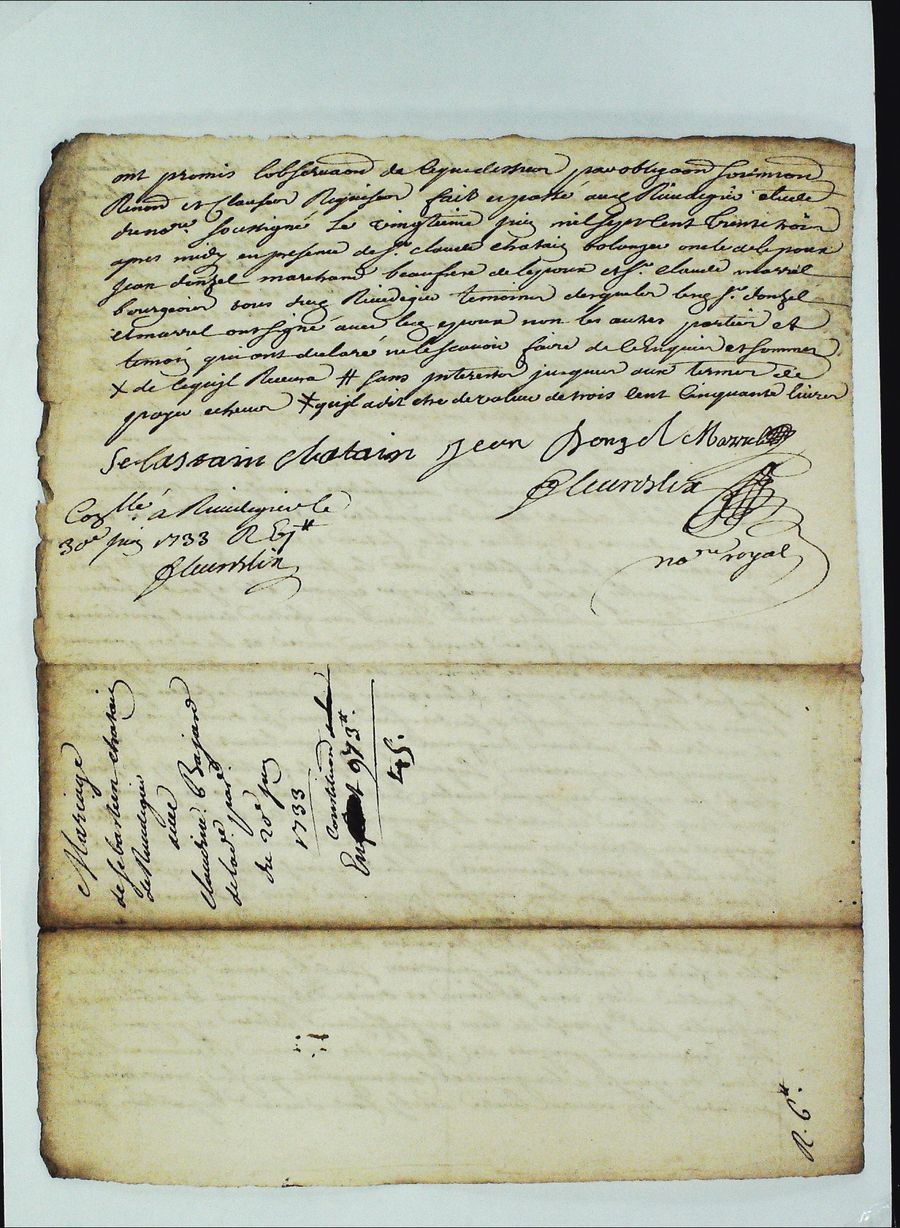 ont promis l'observaon de lequedessus par obligaon soumion
Renon et clauses Requises fait et passé audt Rivedegié etude
du nore soussigné Le vingtieme juin mil sept cent trente trois
apres midy en presence de sr claude chatain bolanger oncle de lepoux
Jean donzel marchand beaufrere de lepoux et sr claude marrel
bourgeois tous dudt Rivedegié temoins desquels lesd sr donzel
et marrel ont signé avec led epoux non les autres parties et
temoin qui ont declaré ne le scavoir faire de ce Enquis et sommes
x de lequil Recevra # sans interests jusques aux termes de
payes echeus x quil a dit etre de valeur de trois cent Cinquante livres
Sebastain chatain Jean Donzel Marrel
fleurdelix
nore royal
Conllé à Rivedegier le
30e juin 1733 R
fleurdelix
Mariage
de sebastien chatain
de Rivedegier
avec
claudine Bajard
de lade par
du 20e juin
1733
Constitution
973#
45.
R. 6#